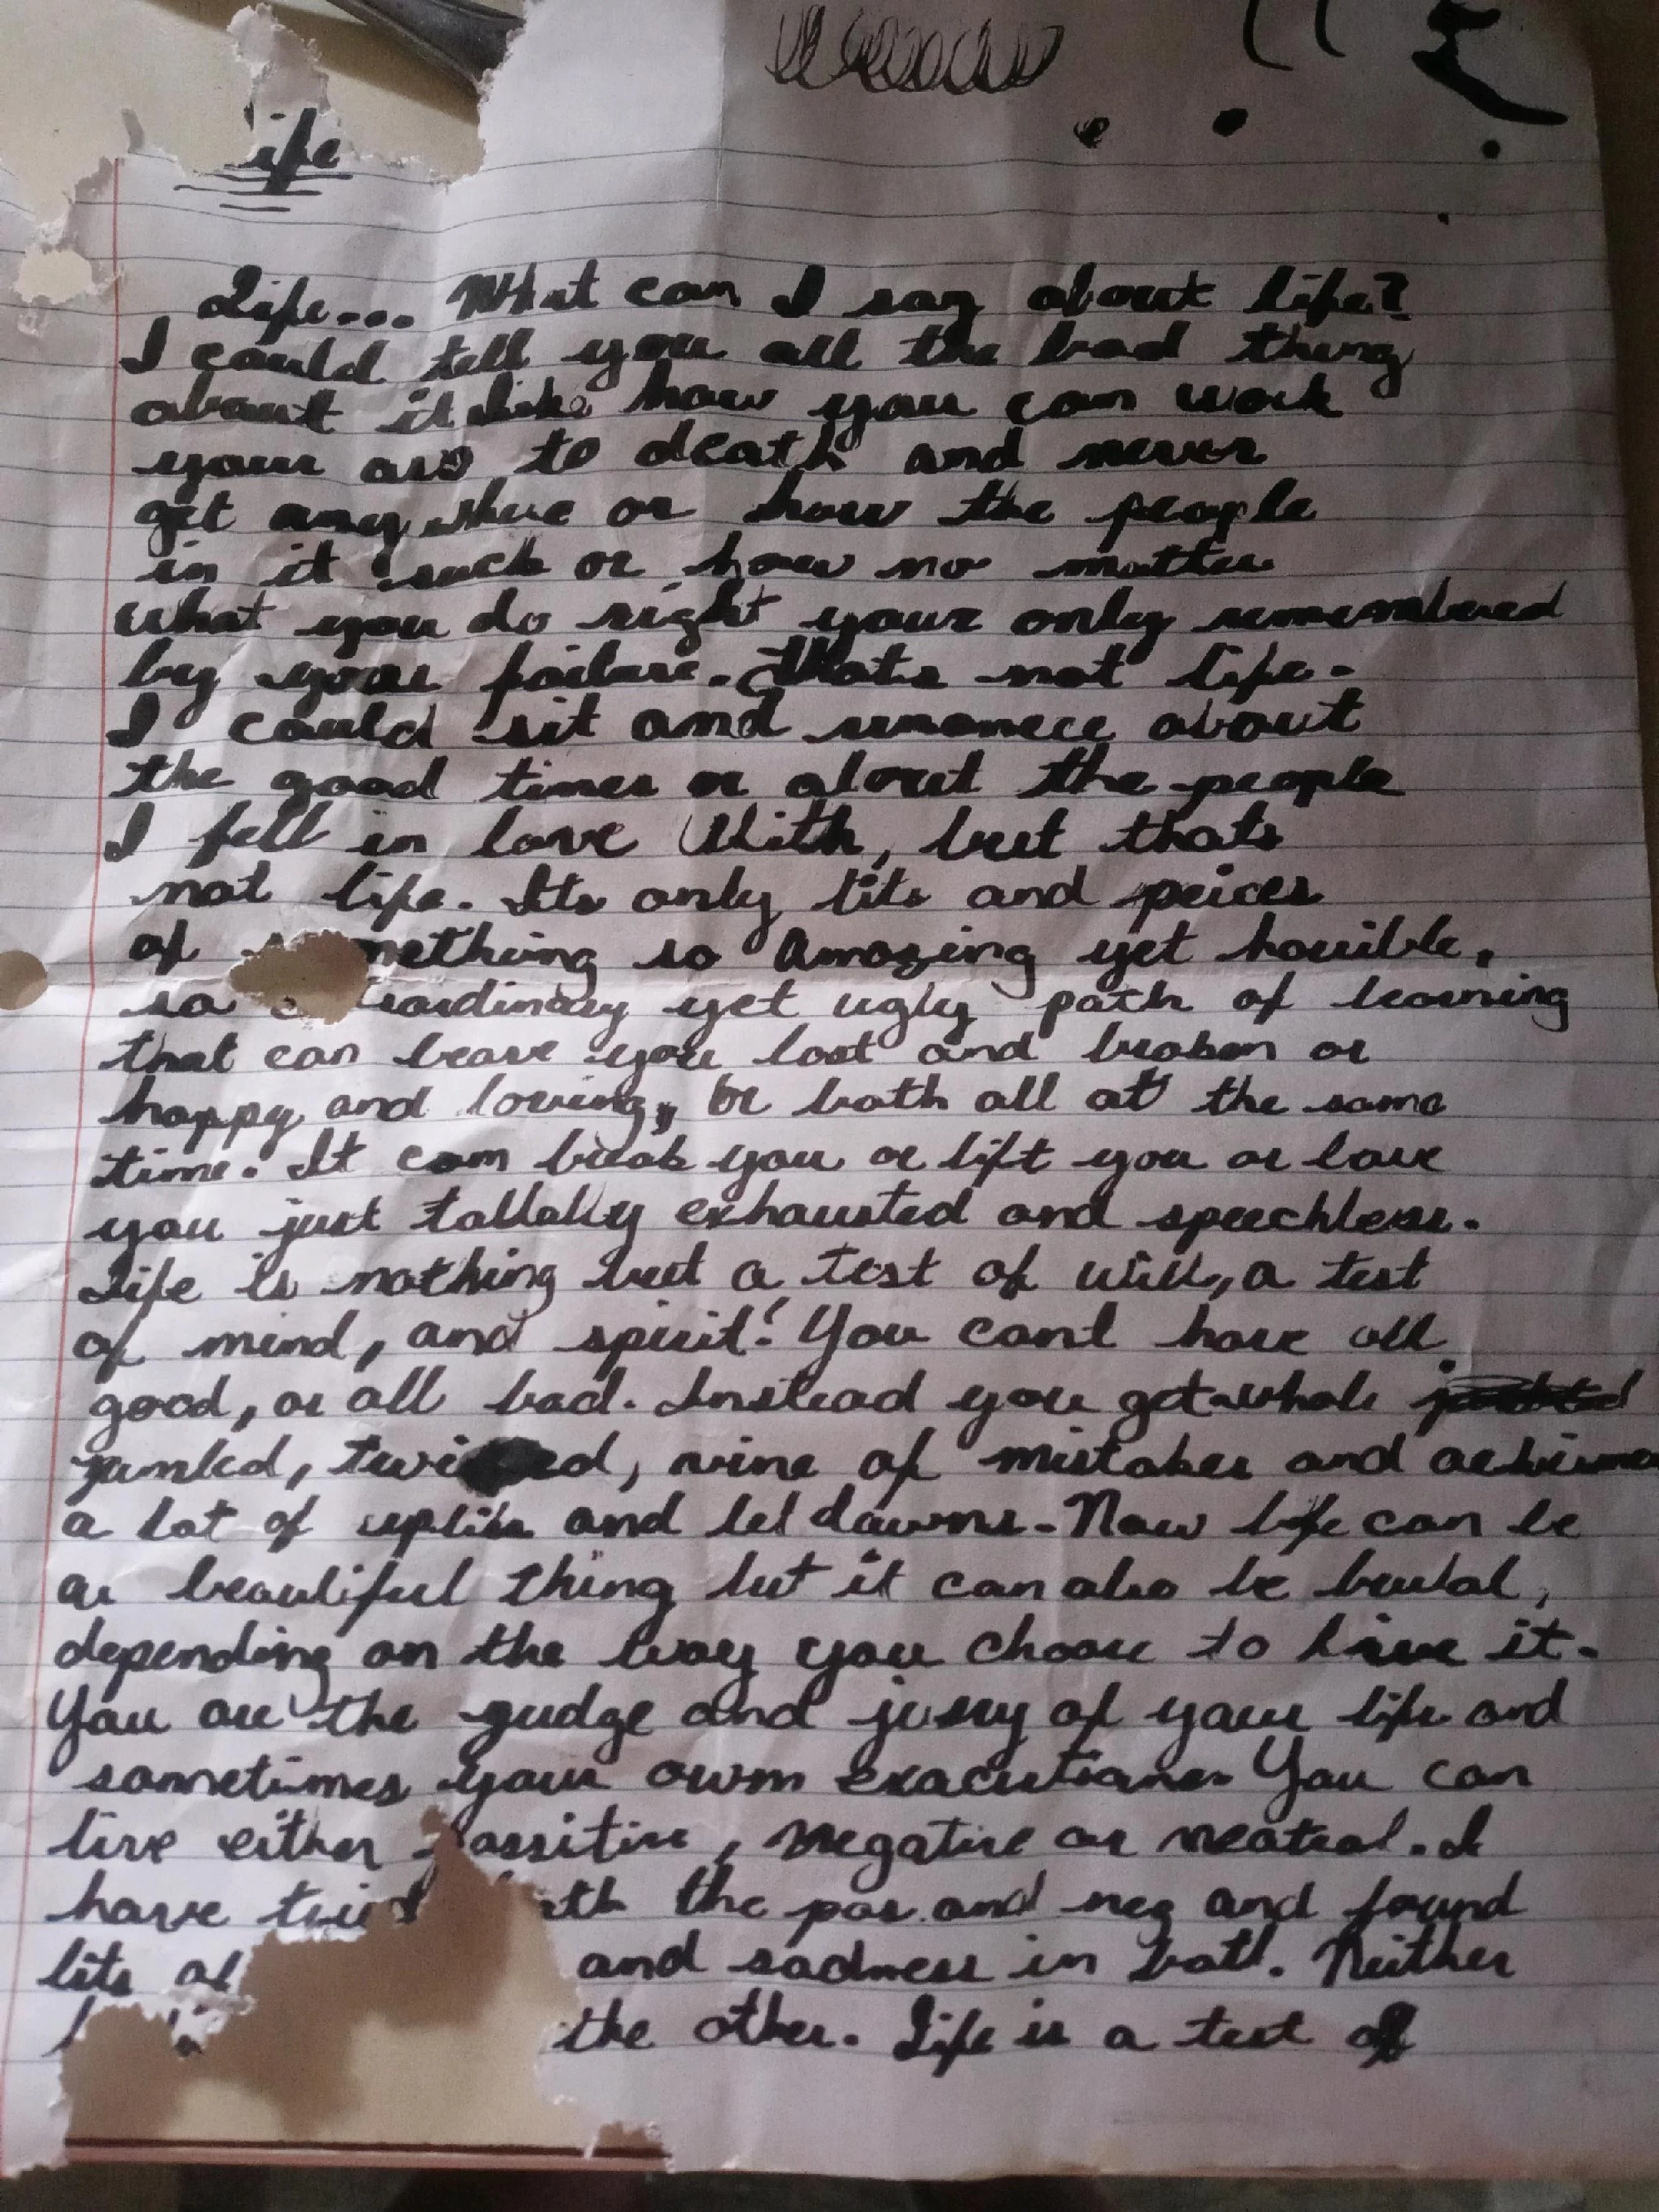 ife
Life... What can I say about life?
I could tell you all the bad thing
about it like how you can work
your ass to death and never
get any
 or how the people
in it suck or how no matter
what you do right your only remembered
by your failure. Thats not life.
I could sit and about
the good times or about the people
I fell in love With, but thats
not life. Its only bits and peices
of mething so Amazing yet horrible,
so traordinary yet ugly path of learning
that can leave you lost and broken or
happy and loving, or both all at the same
time. It can break you or lift you or leave
you just exhausted and speechless.
Life is nothing but a test of will, a test
of mind, and spirit! You cant have all
good, or all bad. Instead you get whole
of mistakes and
a lot of and let downs. Now life can be
a beautiful thing but it can also be brutal,
depending on the way you choose to live it.
You are the gudge and jusry of your life and
sometimes your own You can
live either assitive, negative or neatral. I
have tried th the pos and neg and found
bits of and sadness in both. Neither
the other. Life is a test of